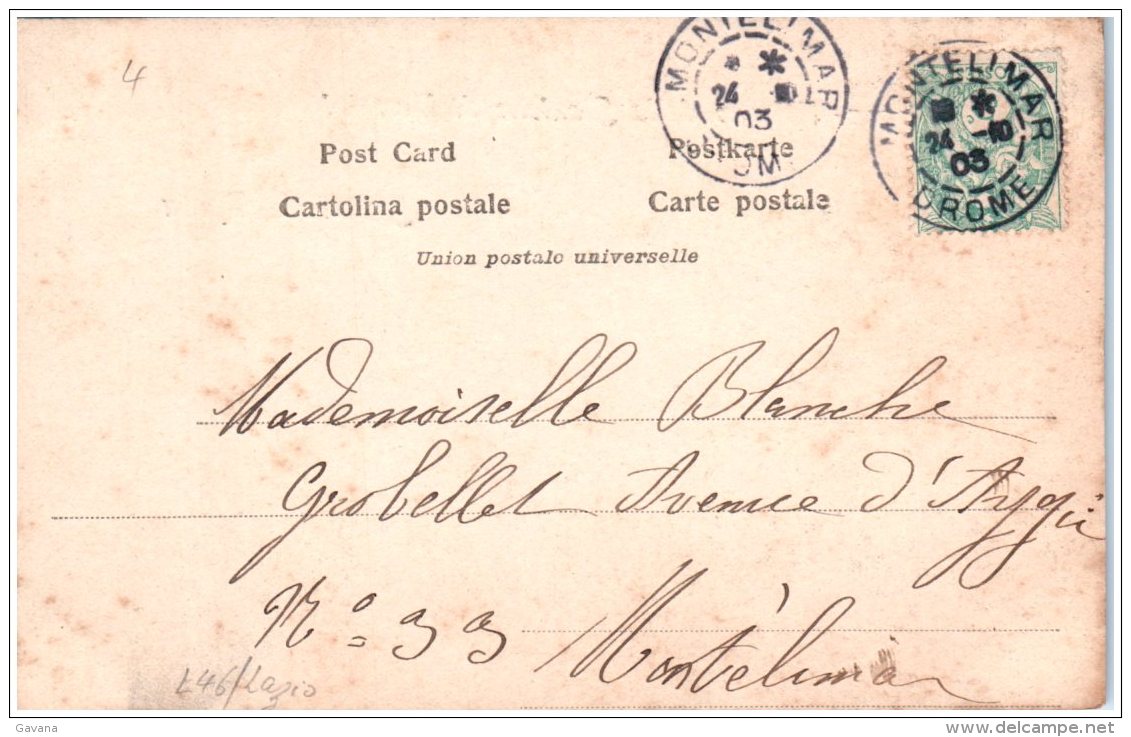 4
MONTELIMAR
24 -10
03
MONTELIMAR
24 -10
03
DROME
Post Card
Postkarte
Cartolina postale
Carte postale
Union postale universelle
Mademoiselle Blanche
Grobellet Avenue d'Aygu
N° = 33 Montélimar
L46/Lazio
Gavana
www.delcampe.net